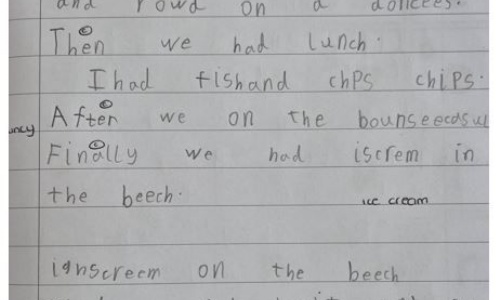 and rowd on a doncees.
Then we had lunch.
I had fishand chps chips.
After we on the bounseecasul
uncy
Finally we had iscrem in
the beech.
ice cream
ignscreem on the beech